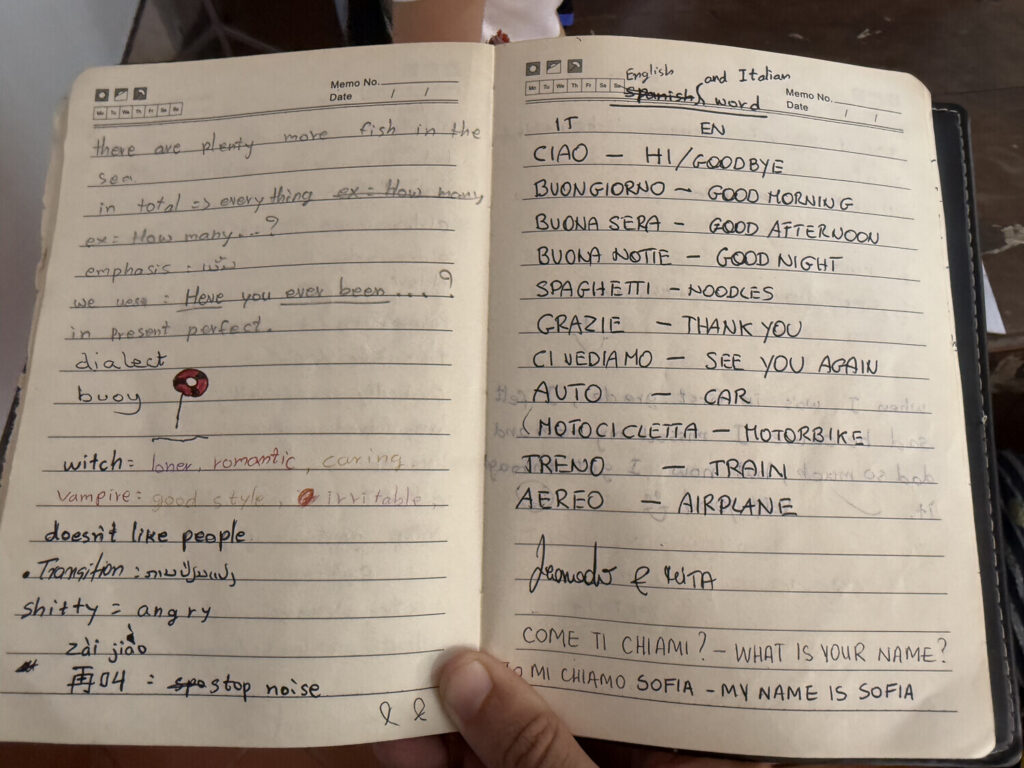 Memo No.
Mo Tu We Th Fr Sa Su
Date / /
there are plenty more fish in the
sea
in total => everything ex= How many
ex= How many...?
emphasis : เน้น
we uese : Have you ever been ... ?
in present perfect.
dialect
buoy
witch= loner, romantic, caring
vampire: good style, irritable,
doesn't like people
• Transition : การเปลี่ยนแปลง
shitty = angry
zài jiào
再叫 : stop noise
English and Italian
Mo Tu We Th Fr Sa Su
Spanish word
Memo No.
Date / /
IT EN
CIAO — HI/GOODBYE
BUONGIORNO — GOOD MORNING
BUONA SERA — GOOD AFTERNOON
BUONA NOTTE — GOOD NIGHT
SPAGHETTI - NOODLES
GRAZIE — THANK YOU
CI VEDIAMO — SEE YOU AGAIN
AUTO — CAR
MOTOCICLETTA — MOTORBIKE
TRENO — TRAIN
AEREO — AIRPLANE
COME TI CHIAMI? — WHAT IS YOUR NAME?
MI CHIAMO SOFIA - MY NAME IS SOFIA